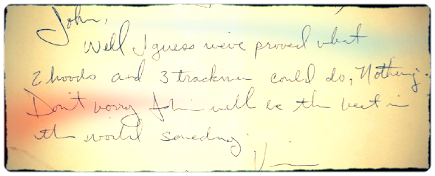 John,
Well I guess we've proved what
2 hoods and 3 trackmen could do, Nothing.
Don't worry John we'll be the best in
the world someday.